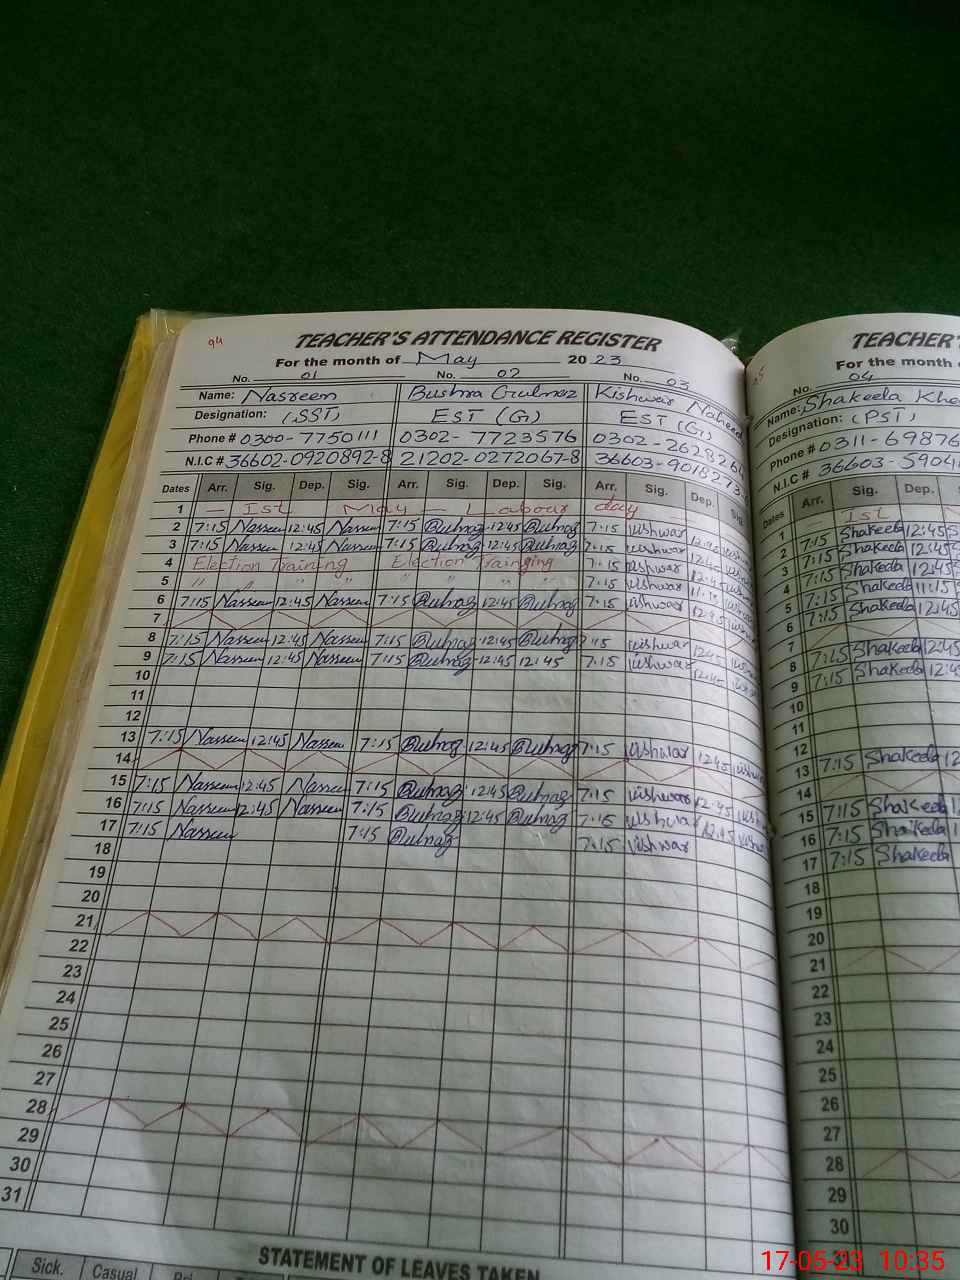 94
TEACHER'S ATTENDANCE REGISTER
For the month of May 2023
No. 01 No. 02 No. 03
Name: Nasreen Bushra Gulnaz Kishwar Naheed
Designation: (SST) EST (G) EST (G)
Phone # 0300-7750111 0302-7723576 0302-2628264
N.I.C # 36602-0920892-8 21202-0272067-8 36603-9018273-
Dates Arr. Sig. Dep. Sig. Arr. Sig. Dep. Sig. Arr. Sig. Dep. Sig.
1 — Ist May — Labour day
2 7:15 Nasreen 12:45 Nasreen 7:15 Gulnaz 12:45 Gulnaz 7:15 Kishwar 12:45 Kishwar
3 7:15 Nasreen 12:45 Nasreen 7:15 Gulnaz 12:45 Gulnaz 7:15 Kishwar 12:45 Kishwar
4 Election Training Election Trainging 7:15 Kishwar 12:45 Kishwar
5 " " " " " " " 7:15 Kishwar 11:15 Kishwar
6 7:15 Nasreen 12:45 Nasreen 7:15 Gulnaz 12:45 Gulnaz 7:15 Kishwar 12:45 Kishwar
7
8 7:15 Nasreen 12:45 Nasreen 7:15 Gulnaz 12:45 Gulnaz 7:15 Kishwar 12:45 Kishwar
9 7:15 Nasreen 12:45 Nasreen 7:15 Gulnaz 12:45 12:45 7:15 Kishwar 12:45 Kishwar
10
11
12
13 7:15 Nasreen 12:45 Nasreen 7:15 Gulnaz 12:45 Gulnaz 7:15 Kishwar 12:45 Kishwar
14
15 7:15 Nasreen 12:45 Nasreen 7:15 Gulnaz 12:45 Gulnaz 7:15 Kishwar 12:45 Kishwar
16 7:15 Nasreen 12:45 Nasreen 7:15 Gulnaz 12:45 Gulnaz 7:15 Kishwar 12:45 Kishwar
17 7:15 Nasreen 7:15 Gulnaz 7:15 Kishwar
18
19
20
21
22
23
24
25
26
27
28
29
30
31
STATEMENT OF LEAVES TAKEN
Sick. Casual
95
TEACHER'
For the month
No. 04
Name: Shakeela
Designation: (PST)
Phone # 0311-69876
N.I.C # 36603-5904
Dates Arr. Sig. Dep.
1 Ist
2 7:15 Shakeela 12:45
3 7:15 Shakeela 12:45
4 7:15 Shakeela 12:45
5 7:15 Shakeela 11:15
6 7:15 Shakeela 12:45
7
8 7:15 Shakeela 12:45
9 7:15 Shakeela 12:4
10
11
12
13 7:15 Shakeela 12
14
15 7:15 Shakeela 1
16 7:15 Shakeela 1
17 7:15 Shakeela
18
19
20
21
22
23
24
25
26
27
28
29
30
17-05-23 10:35